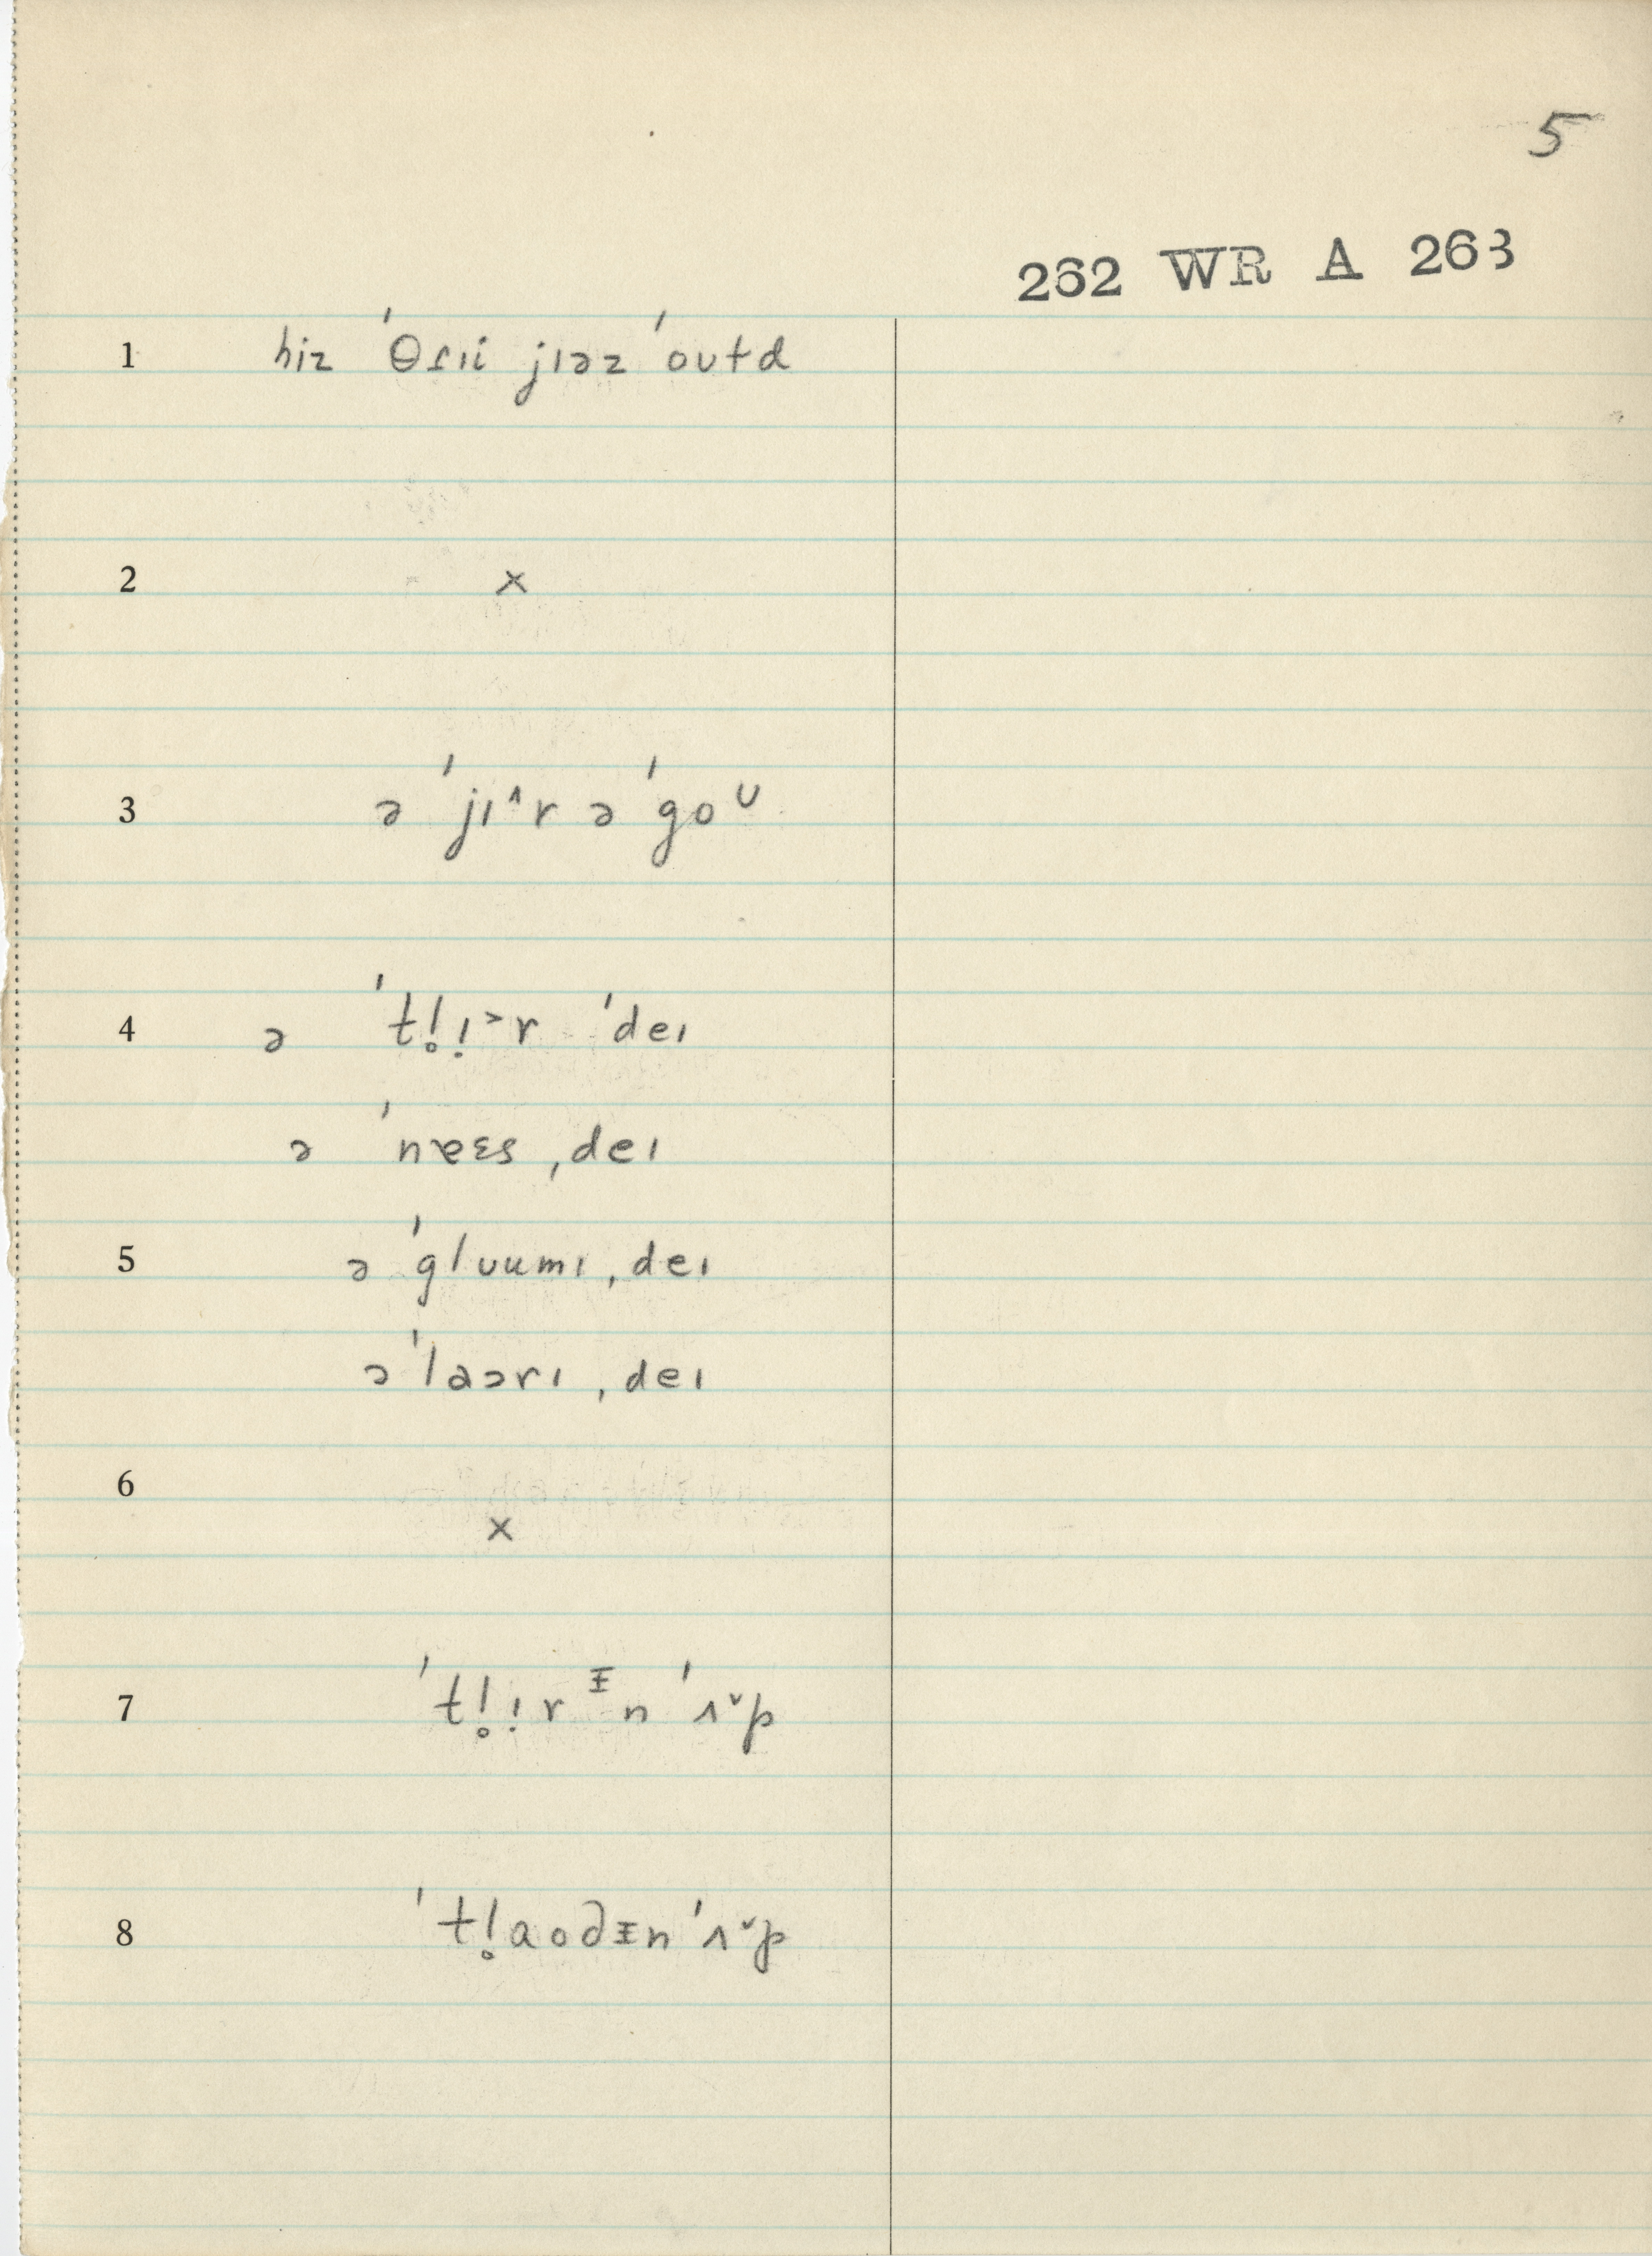 5
262 WR A 263
1 hiz ˈθɾɪi jɪəz ˈoʊtd
2 ×
3 ə ˈjɪ^r ə ˈgoᶷ
4 ə ˈtl̥ɪ̣˃r ˈdeɪ
ə ˈnɐɛs ˌdeɪ
5 ə ˈglʊumɪ ˌdeɪ
ə ˈlaɔrɪ ˌdeɪ
6 ×
7 ˈtl̥ɪ̣rᵻn ˈʌ˅p
8 ˈtl̥aoðᵻn ˈʌ˅p